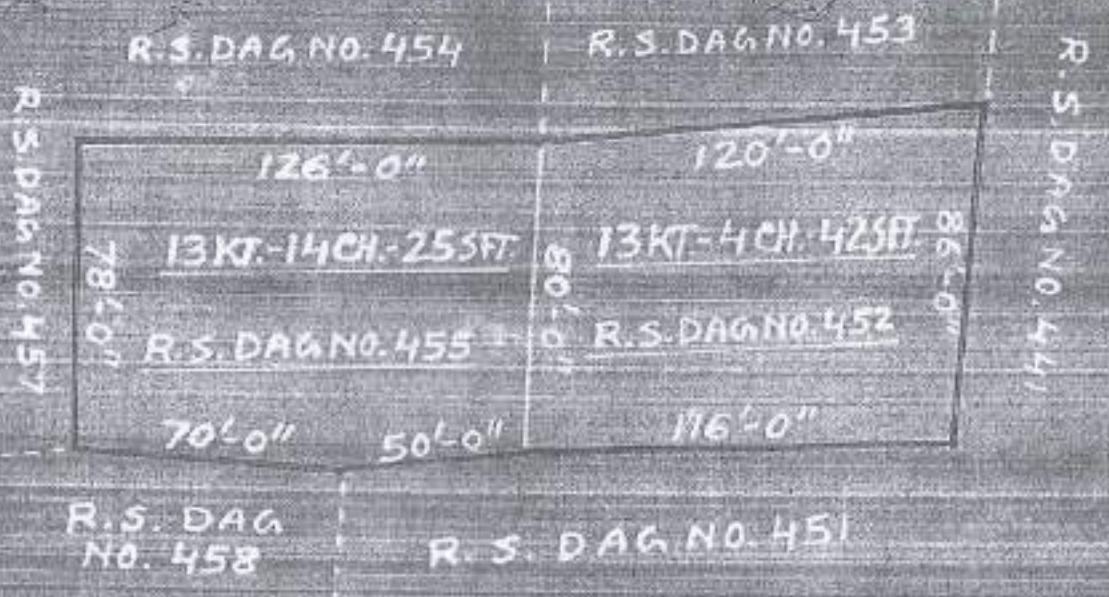 R.S.DAG NO. 454
R.S.DAG NO. 453
R.S.DAG NO. 457
R.S.DAG NO. 441
126'-0"
120'-0"
13KT.-14CH.-25SFT.
13KT-4CH.-42SFT.
78'-0"
80'-0"
86'-0"
R.S.DAG NO. 455
R.S.DAG NO. 452
70'-0"
50'-0"
116'-0"
R.S. DAG
NO. 458
R. S. DAG NO. 451